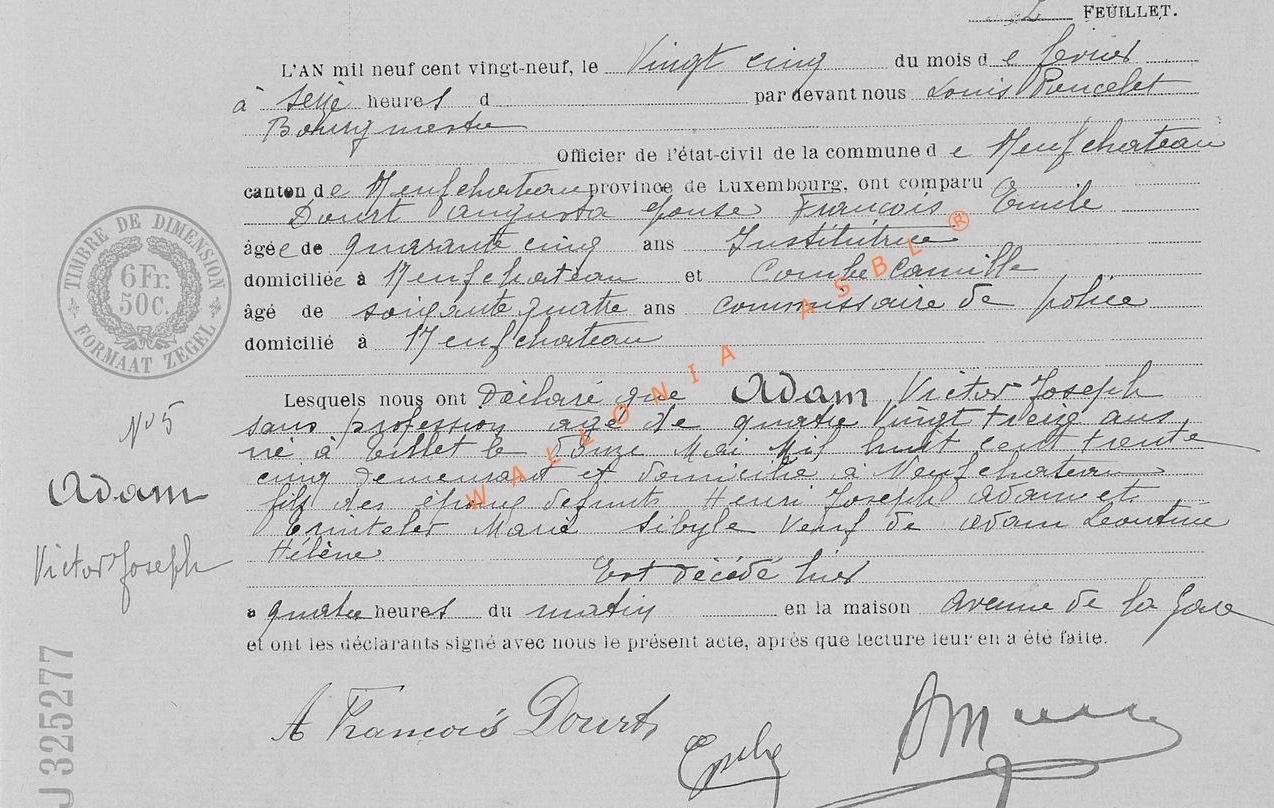 2 FEUILLET.
L'AN mil neuf cent vingt-neuf, le Vingt cinq du mois d e février
à seize heures d par devant nous Louis Poncelet
Bourgmestre
Officier de l'état-civil de la commune d e Neufchateau
canton de Neufchateau province de Luxembourg, ont comparu
Dourt Augusta épouse François Emile
âgée de quarante cinq ans Institutrice
domiciliée à Neufchateau et Combe Camille
âgé de soixante quatre ans commissaire de police
domicilié à Neufchateau
Lesquels nous ont Déclaré que Adam Victor Joseph
sans profession agé de quatre Vingt treize ans
né à Tillet le Douze Mai Mil huit cent trente
cinq demeurant et domicilié à Neufchateau
fils des époux défunts Henri Joseph Adam et
Marie Sibyle Veuf de Adam Léontine
Hélène
Est décédé hier
à quatre heures du matin en la maison avenue de la Gare
et ont les déclarants signé avec nous le présent acte, après que lecture leur en a été faite.
A François Dourt
N° 5
Adam
Victor Joseph
TIMBRE DE DIMENSION
6 Fr.
50 C.
FORMAAT ZEGEL
J 325277
WALLONIA ASBL ®